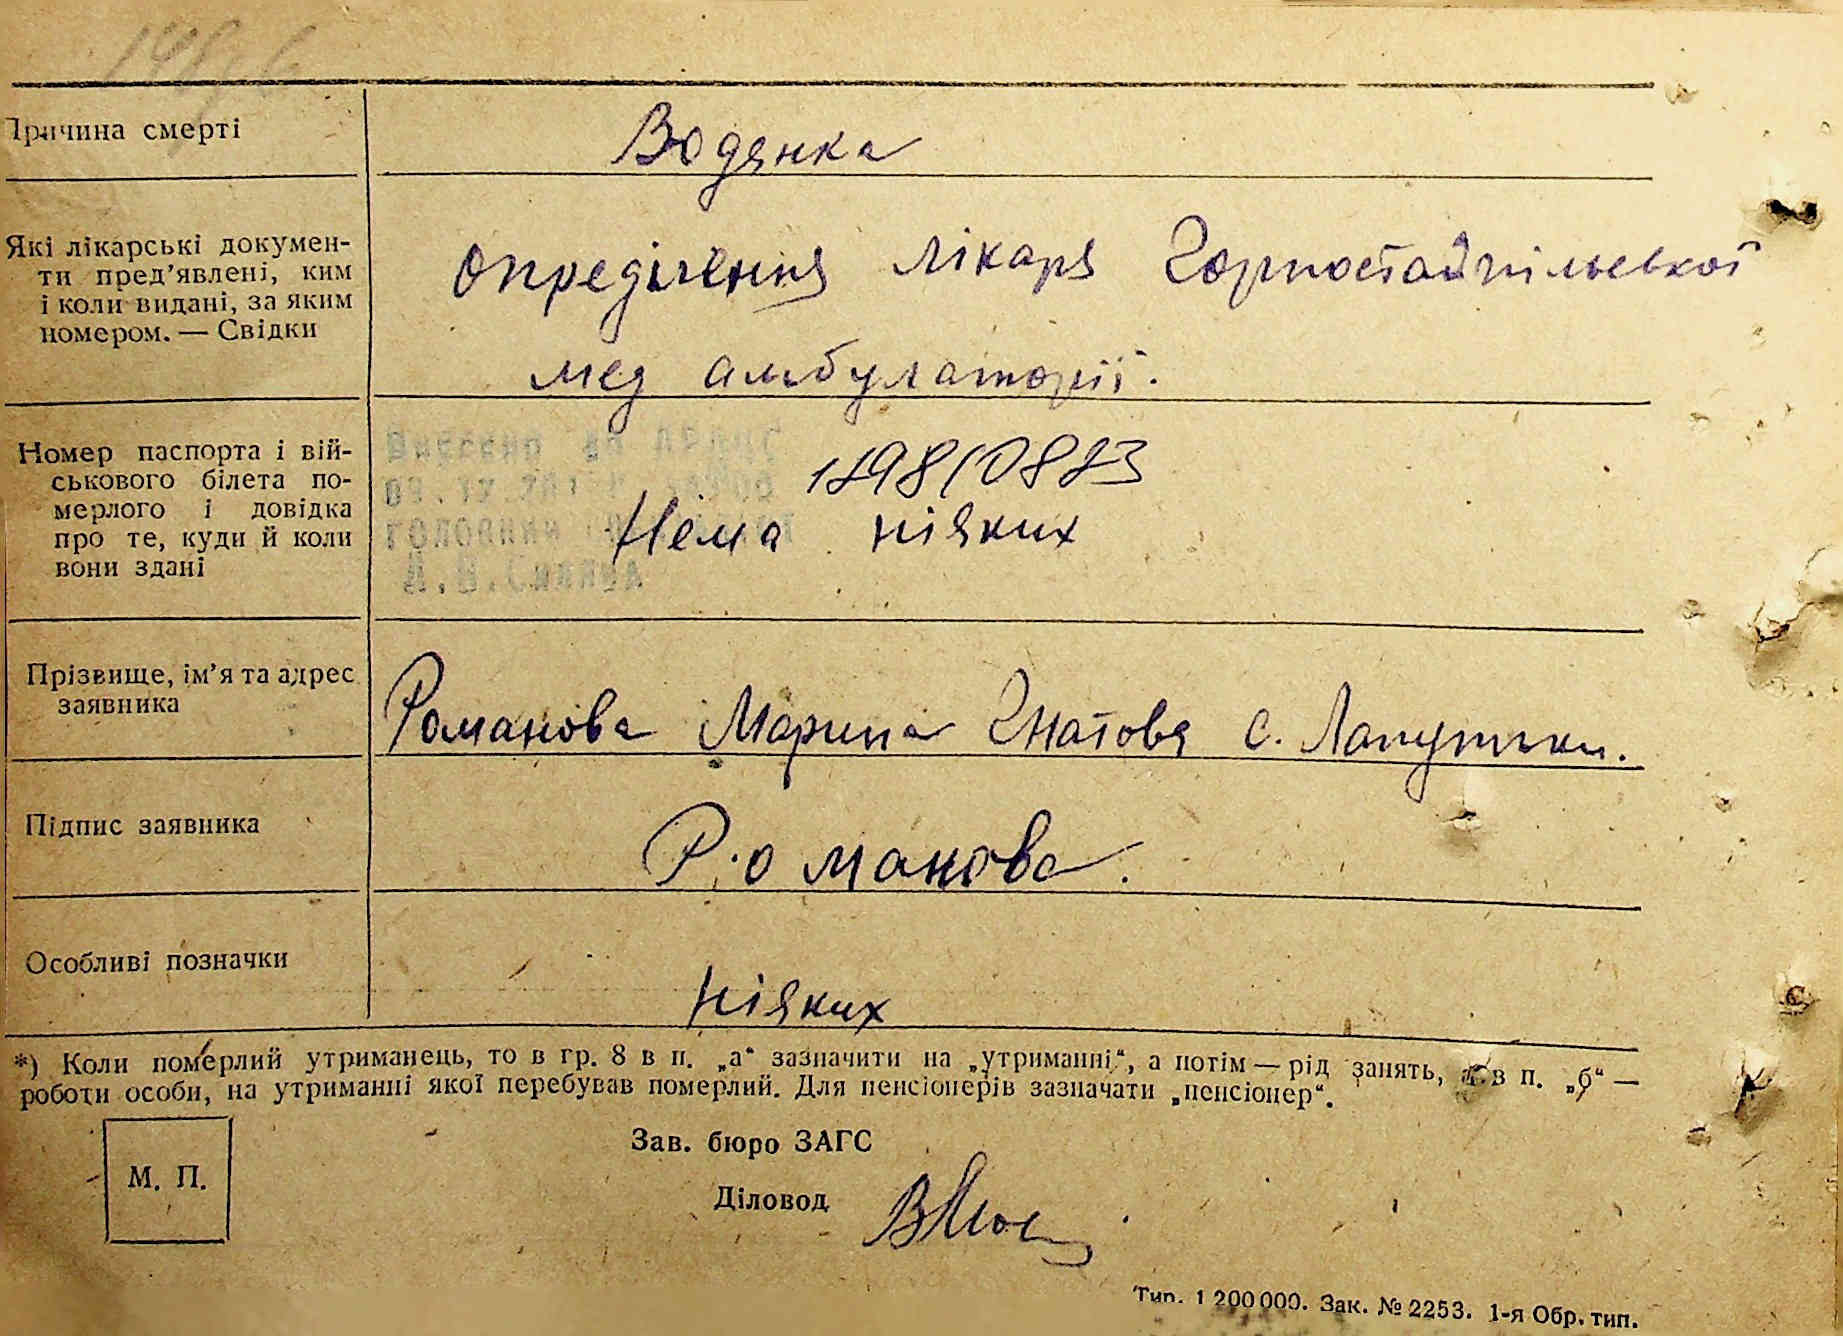 Причина смерті
Водянка
Які лікарські докумен-
ти пред'явлені, ким
і коли видані, за яким
номером. — Свідки
опреділення лікаря Горностайпільської
мед амбулаторії.
Номер паспорта і вій-
ськового білета по-
мерлого і довідка
про те, куди й коли
вони здані
Внесено до
головний
Нема ніяких
Прізвище, ім'я та адрес
заявника
Романова Марина Гнатовя с. Лапутьки.
Підпис заявника
Романова.
Особливі позначки
ніяких
*) Коли померлий утриманець, то в гр. 8 в п. „а“ зазначити на „утриманні“, а потім — рід занять, а в п. „б“ —
роботи особи, на утриманні якої перебував померлий. Для пенсіонерів зазначати „пенсіонер“.
М. П.
Зав. бюро ЗАГС
Діловод
Тип. 1 200 000. Зак. № 2253. 1-я Обр. тип.